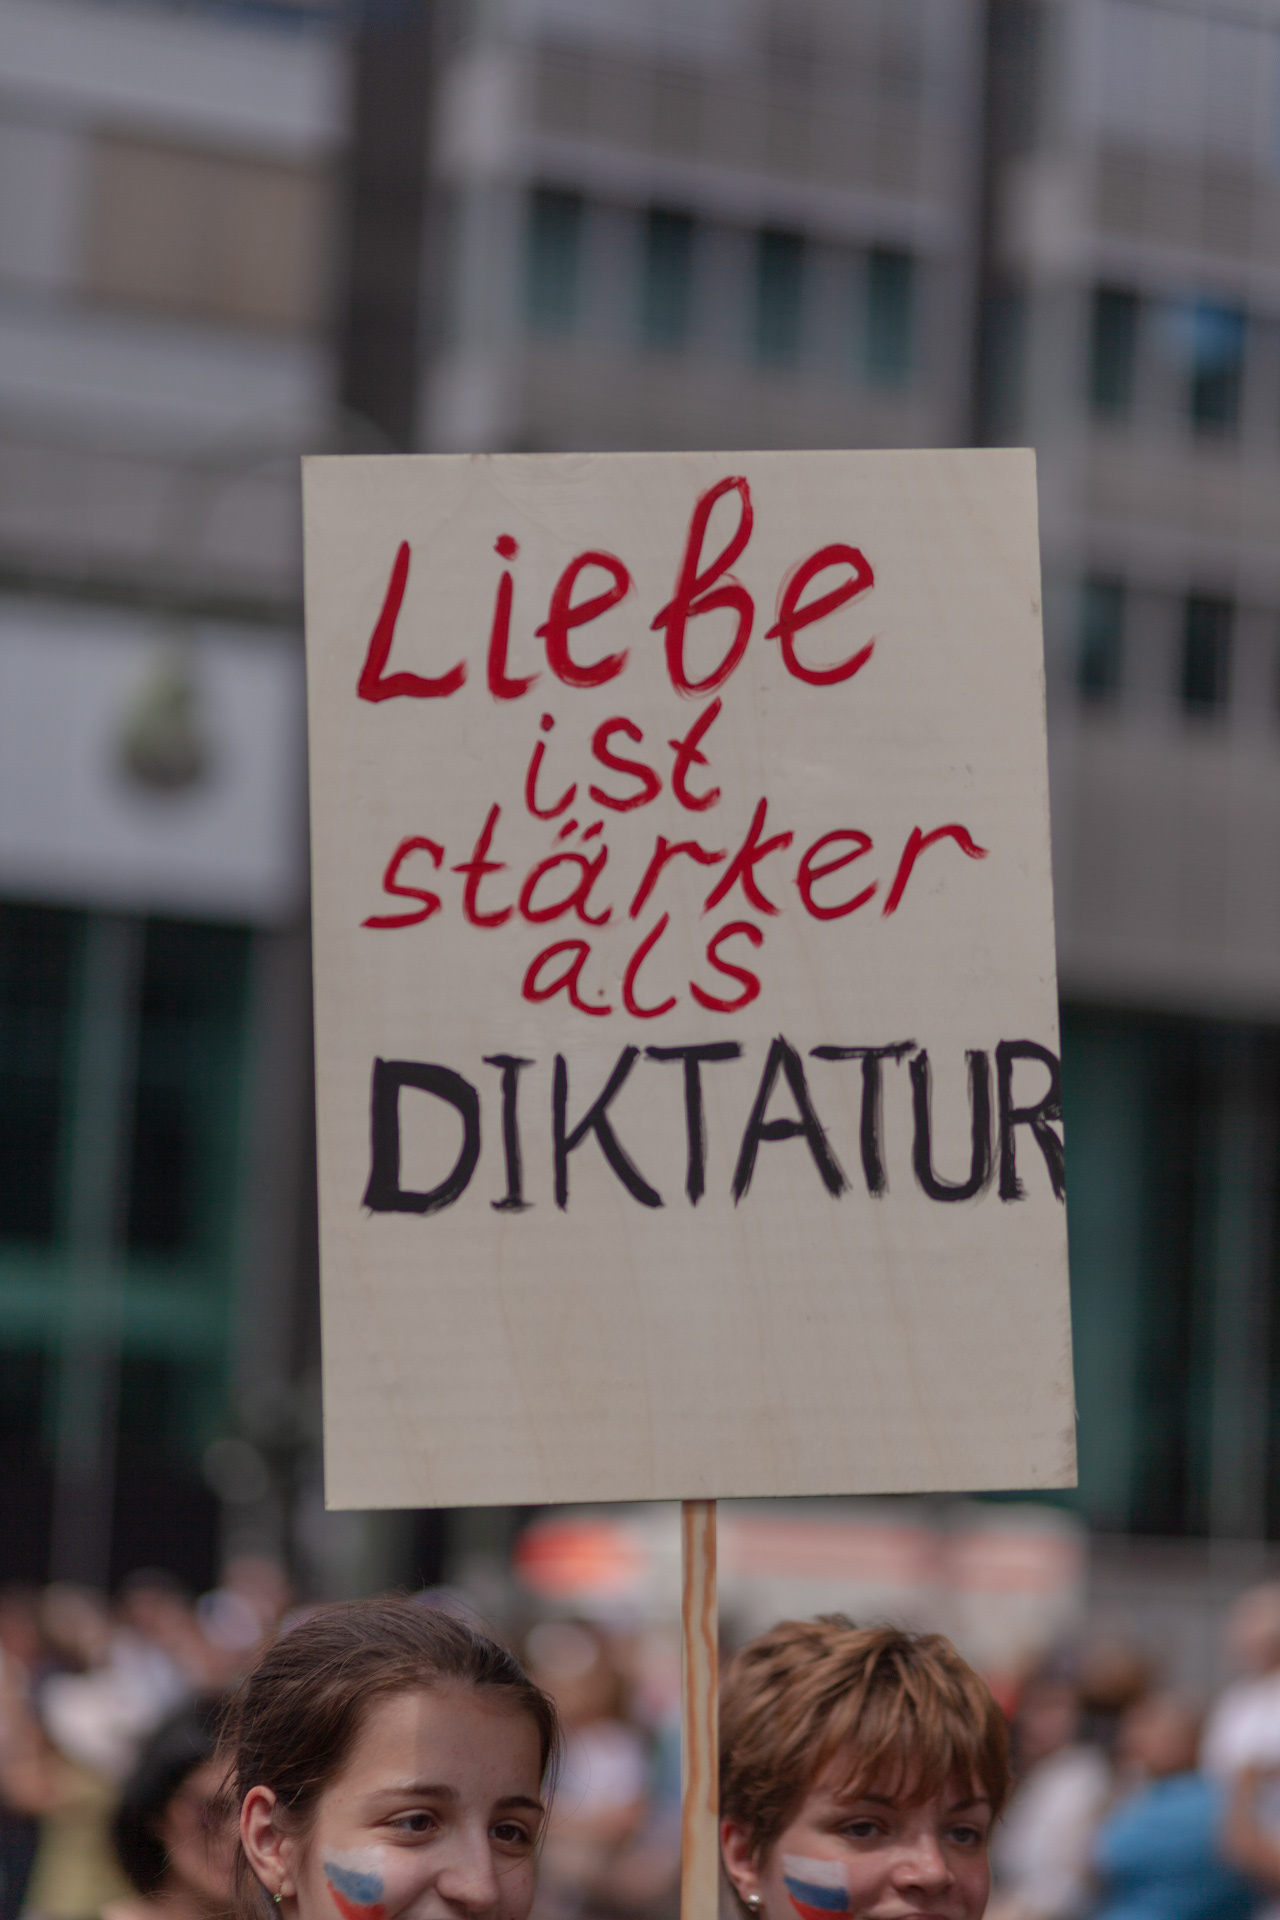 Liebe
ist
stärker
als
DIKTATUR